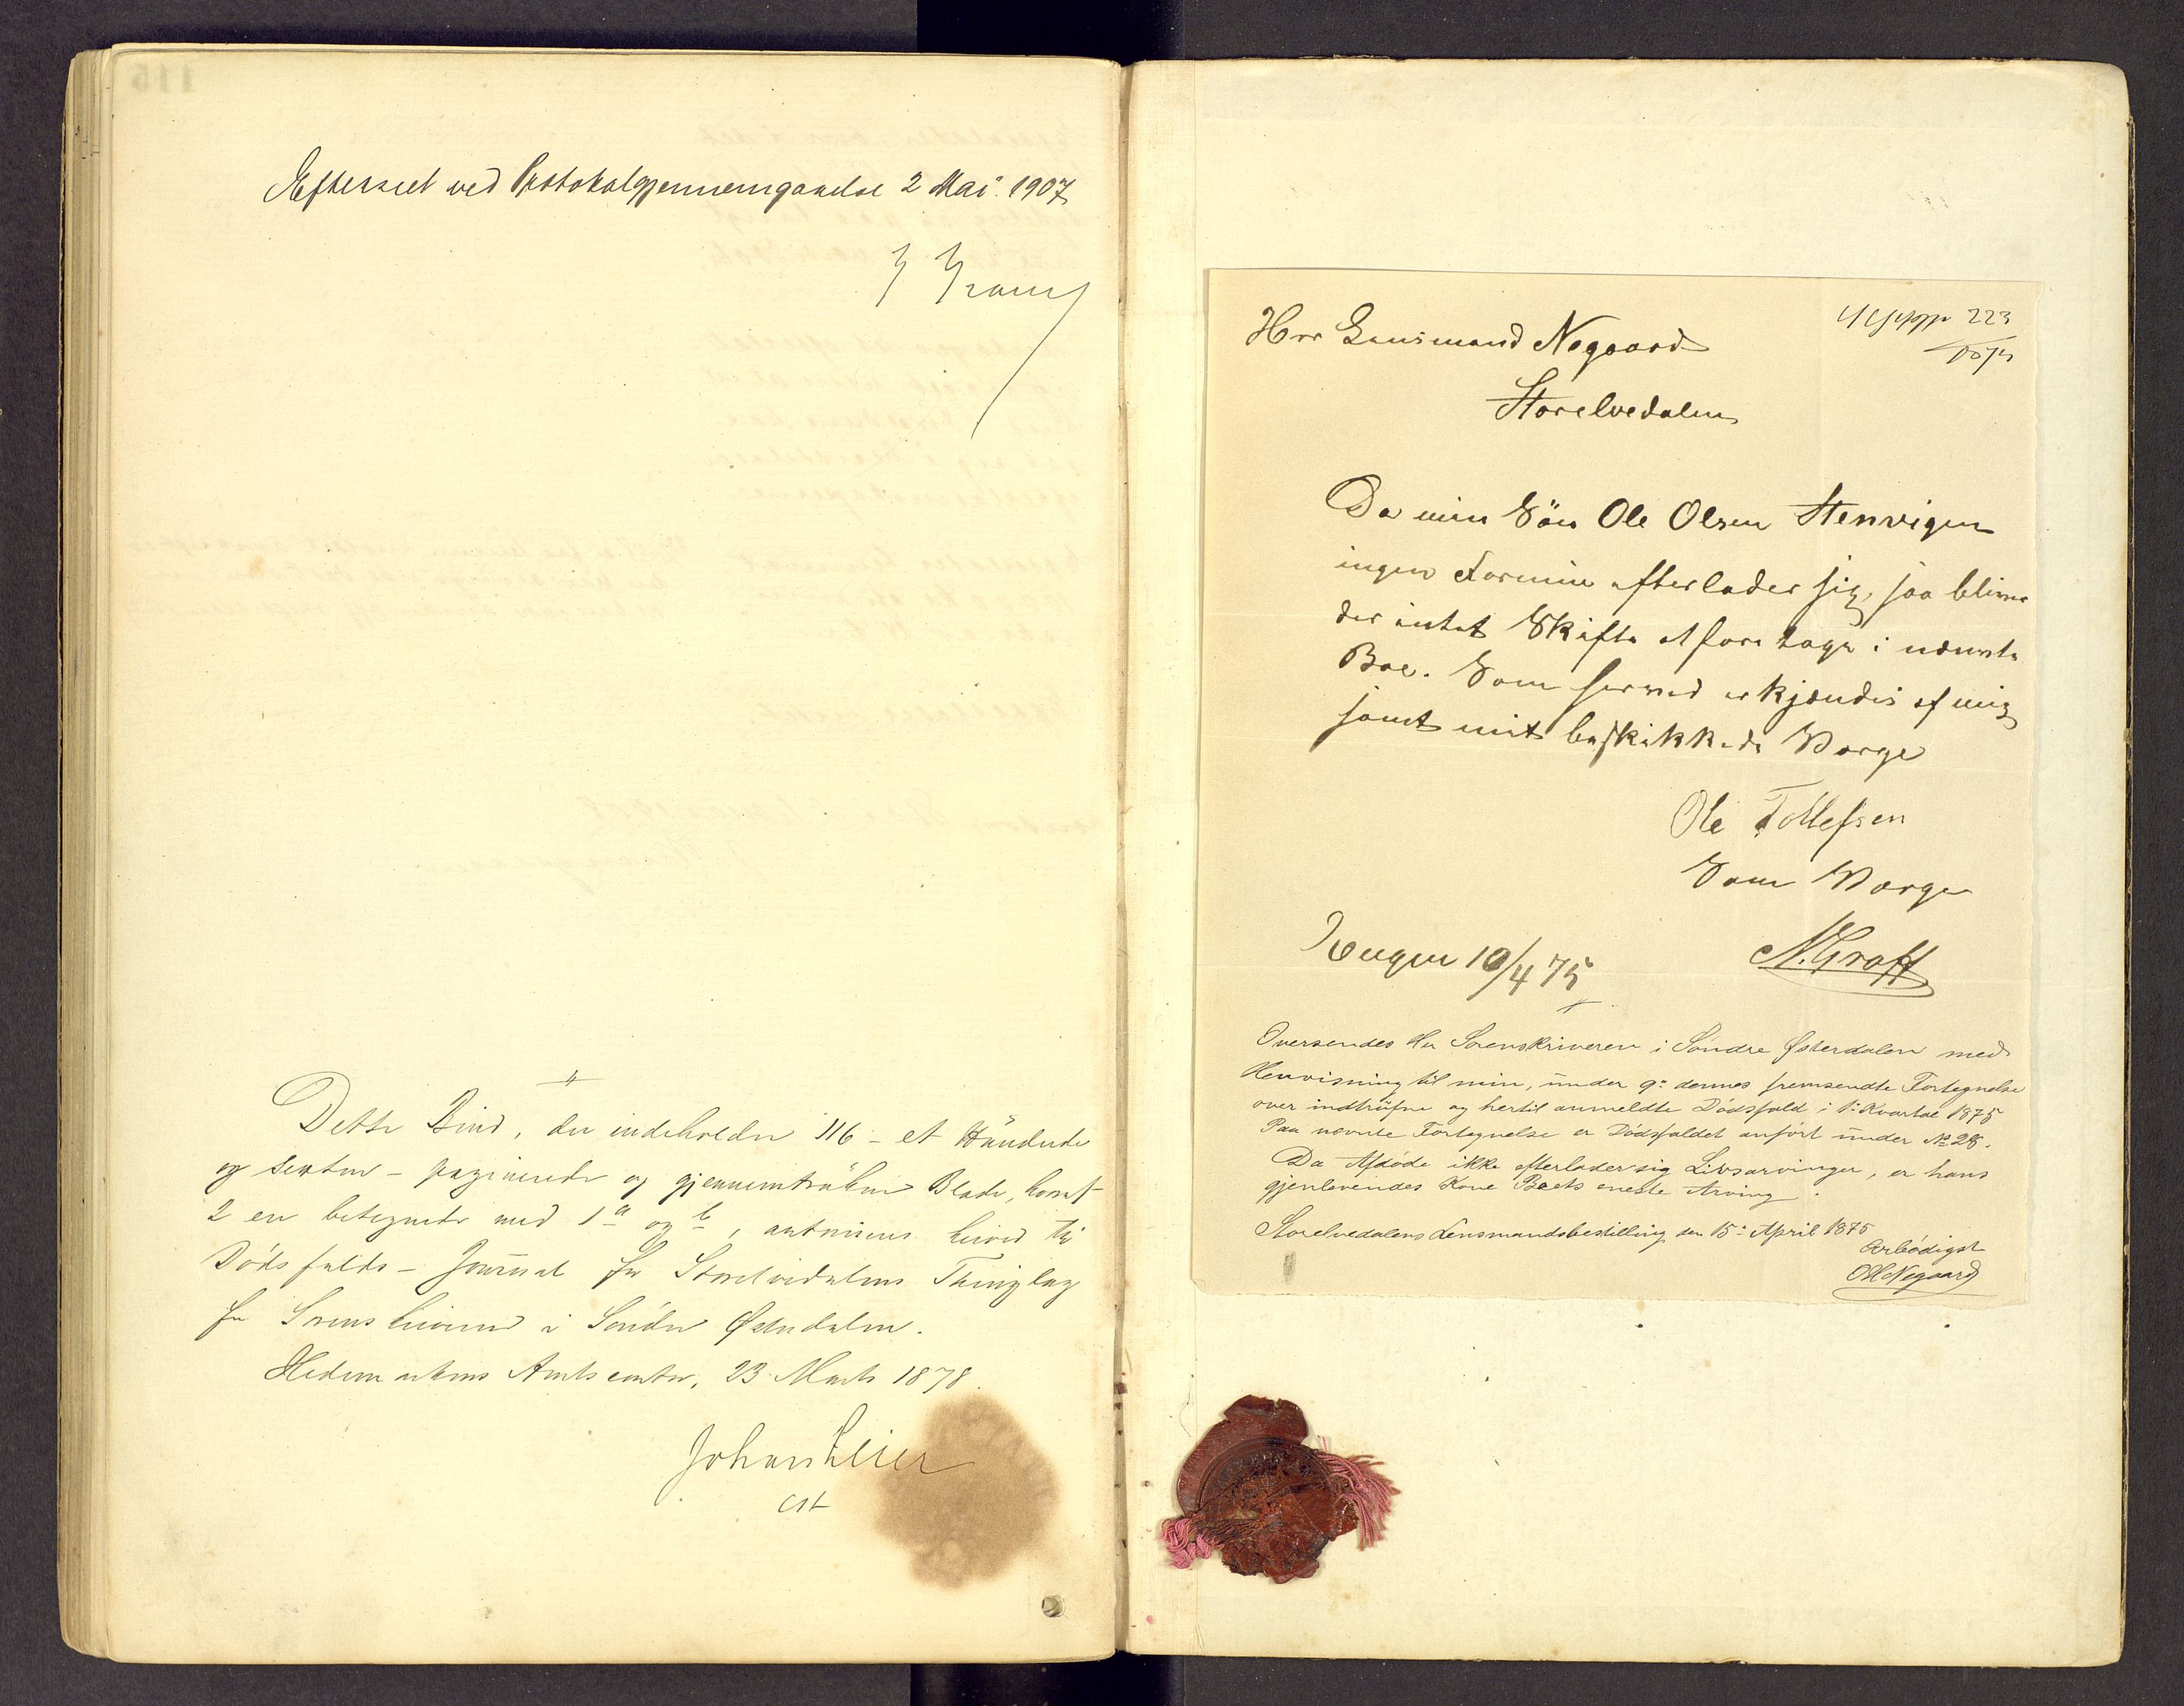 Efterseet ved Protokolgjennemgaaelse 2 Mai 1907
Dette Bind, der indeholder 116 - et Hündrede
og sexten - paginerede og gjennemtrükne Blade, hvoraf
2 er betegnede med 1a og b, autoriseres herved til
Dödsfalds-Joürnal for Storelvedalens Thinglag
for Sorenskriveren i Söndre Østerdalen.
Hedemarkens Amtscontor, 23 Marts 1878
Johan
cst
Herr Lensmand Nøgaard
223
Storelvedalen
Da min Sön Ole Olsen Stenvigen
ingen Formue efterlader sig, saa bliver
der intet Skifte at foretage i nævnte
Boe. Som herved erkjændes af mig
samt mit beskikkede Værge
Ole Tollefsen
Som Værge
N. Graff
10/4 75
Oversendes Hr Sorenskriveren i Söndre Østerdalen med
Henvisning til min, ünder 9de dennes fremsendte Fortegnelse
over indtrüfne og hertil anmeldte Dödsfald i 1ste Kvartal 1875
Paa nævnte Fortegnelse er Dödsfaldet anfört ünder No 28.
Da Afdöde ikke efterlader sig Livsarvinger, er hans
gjenlevendes Kone Boets eneste Arving.
Storelvedalens Lensmandsbestilling den 15de April 1875
Ærbödigst
Nøgaard